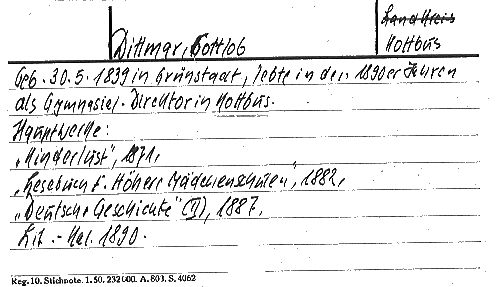 Land Kreis
Dittmar, Gottlob Kottbus
Geb. 30.5.1839 in Grünstadt, lebte in den 1890er Jahren
als Gymnasial-Direktor in Kottbus.
Hauptwerke:
„Kinderlust", 1871,
„Lesebuch f. Höhere Mädchenschulen", 1882,
„Deutsche Geschichte" (II), 1887,
Lit.-Kal. 1890.
Reg. 10. Stichnote. 1. 50. 232000. A. 803. S. 4062